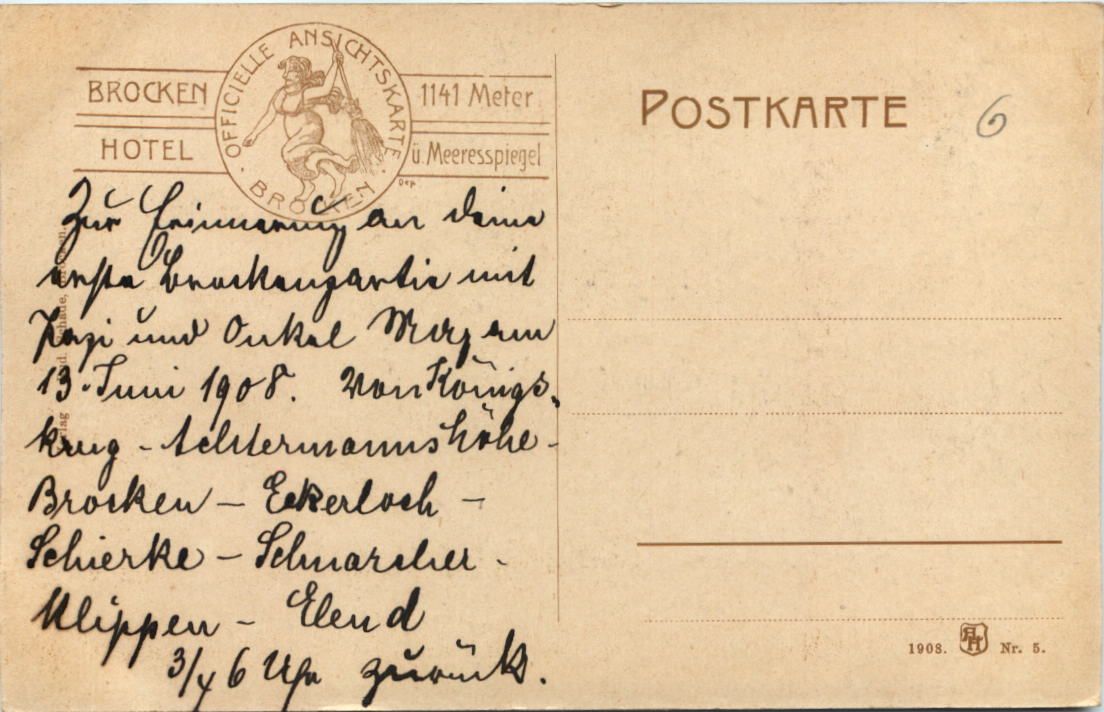 OFFICIELLE ANSICHTSKARTE
BROCKEN
BROCKEN
HOTEL
1141 Meter
ü. Meeresspiegel
Dep
POSTKARTE
6
Zur Erinnerung an deine
erste Brockenpartie mit
und Onkel am
13. Juni 1908. Von Königs-
krug - Achtermannshöhe -
Brocken - Eckerloch -
Schierke - Schnarcher -
Klippen - Elend
3/4 6 Uhr zurück.
1908. Nr. 5.